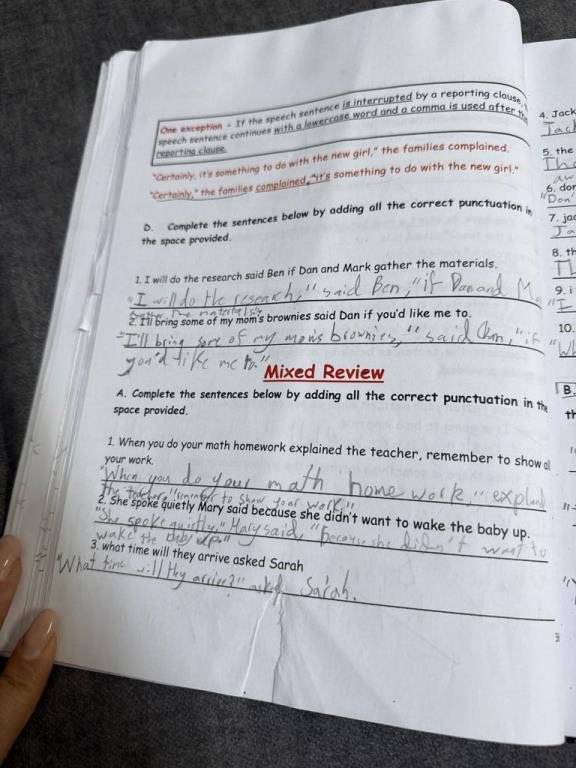 One exception - If the speech sentence is interrupted by a reporting clause,
speech sentence continues with a lowercase word and a comma is used after the
reporting clause.
"Certainly, it's something to do with the new girl," the families complained.
"Certainly," the families complained, "it's something to do with the new girl."
D. Complete the sentences below by adding all the correct punctuation in
the space provided.
1. I will do the research said Ben if Dan and Mark gather the materials.
"I will do the reseach," said Ben, "if Dan and Ma
gather the materials."
2. I'll bring some of my mom's brownies said Dan if you'd like me to.
"I'll bring some of my mom's brownies," said Dan, "if
you'd like me to."
Mixed Review
A. Complete the sentences below by adding all the correct punctuation in the
space provided.
1. When you do your math homework explained the teacher, remember to show al
your work.
"When you do your math home work," explaind
the teacher, "remember to show your work."
2. She spoke quietly Mary said because she didn't want to wake the baby up.
"She spoke quistly," Mary said, "because she didn't want to
wake the baby up."
3. what time will they arrive asked Sarah
"What time will they arrive?" asked Sarah.
4. Jack
Jac
5. the
6. don
"Don'
7. jac
Ja
8. th
9. i
"I
10.
B
th